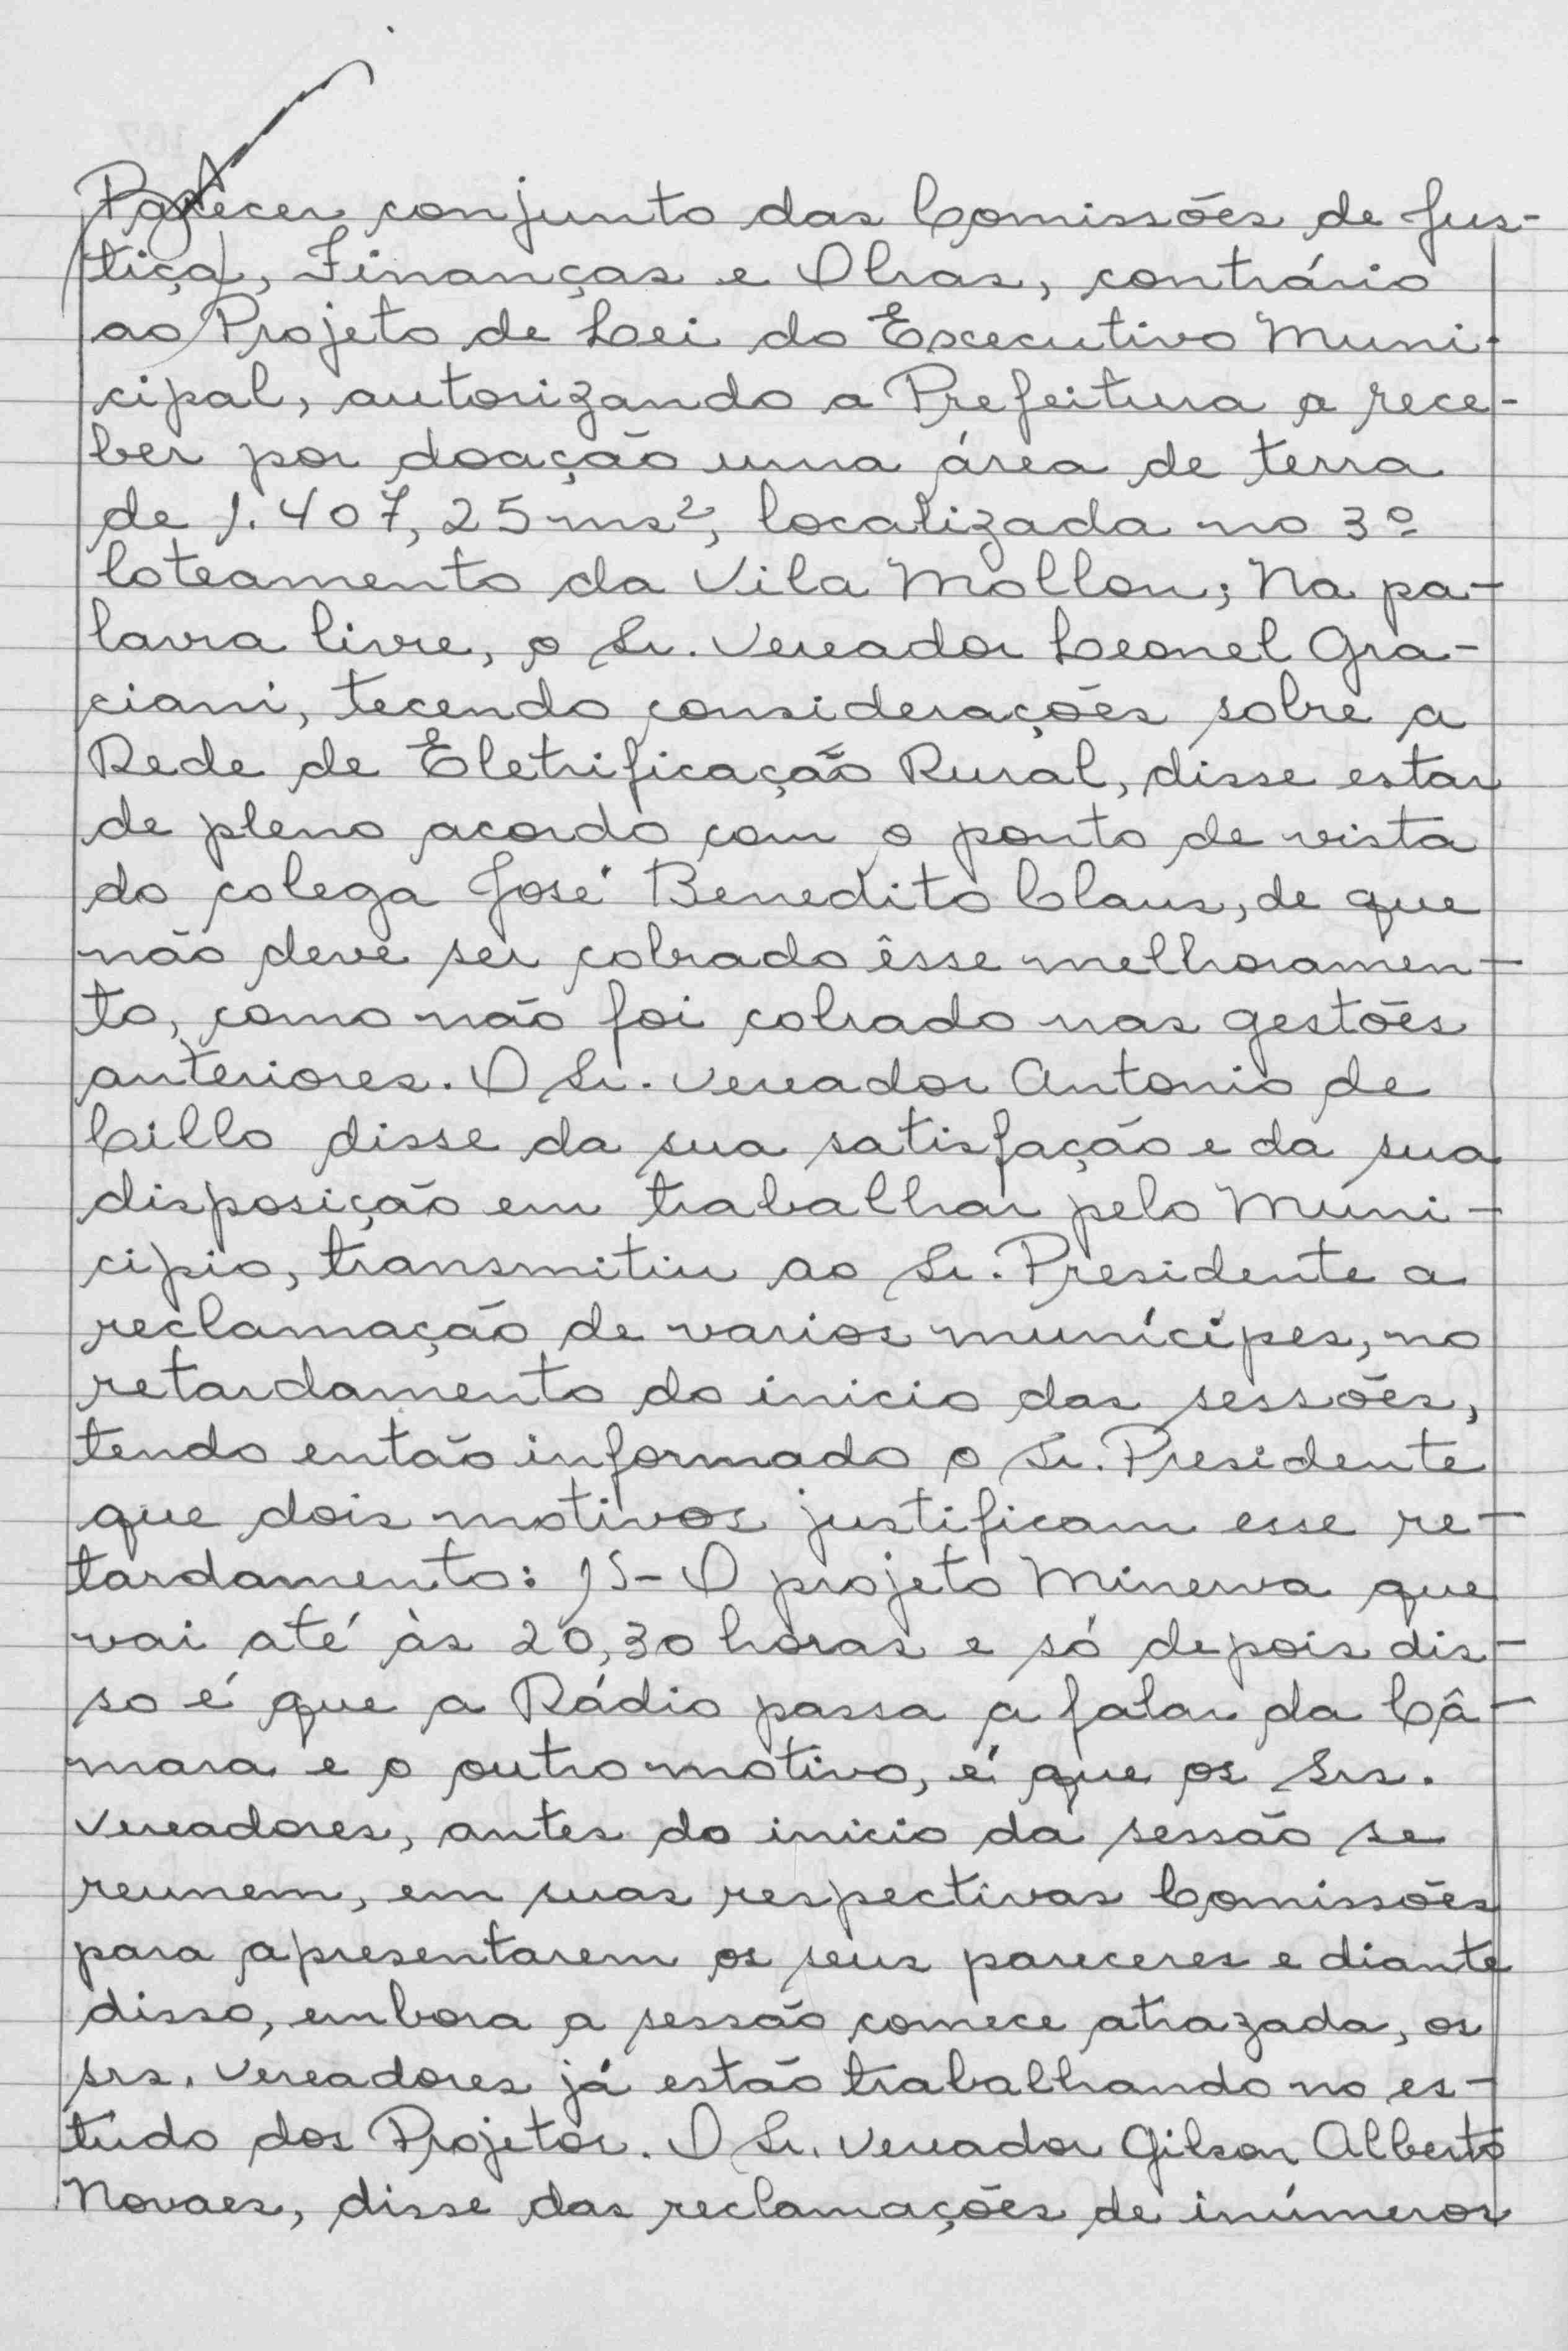 Parecer conjunto das Comissões de Jus-
tiça, Finanças e Obras, contrário
ao Projeto de Lei do Executivo Muni-
cipal, autorizando a Prefeitura a rece-
ber por doação uma área de terra
de 1.407,25 ms², localizada no 3º
loteamento da Vila Mollon; Na pa-
lavra livre, o Sr. Vereador Leonel Gra-
ciani, tecendo considerações sobre a
Rede de Eletrificação Rural, disse estar
de pleno acordo com o ponto de vista
do colega José Benedito Claus, de que
não deve ser cobrado êsse melhoramen-
to, como não foi cobrado nas gestões
anteriores. O Sr. Vereador Antonio de
Cillo disse da sua satisfação e da sua
disposição em trabalhar pelo Muni-
cipio, transmitiu ao Sr. Presidente a
reclamação de varios munícipes, no
retardamento do inicio das sessões,
tendo então informado o Sr. Presidente
que dois motivos justificam esse re-
tardamento: 1º- O projeto Minerva que
vai até às 20,30 horas e só depois dis-
so é que a Rádio passa a falar da Câ-
mara e o outro motivo, é que os Srs.
Vereadores, antes do inicio da sessão se
reunem, em suas respectivas Comissões
para apresentarem os seus pareceres e diante
disso, embora a sessão comece atrazada, os
srs. Vereadores já estão trabalhando no es-
tudo dos Projetos. O Sr. Vereador Gilson Alberto
Novaes, disse das reclamações de inúmeros